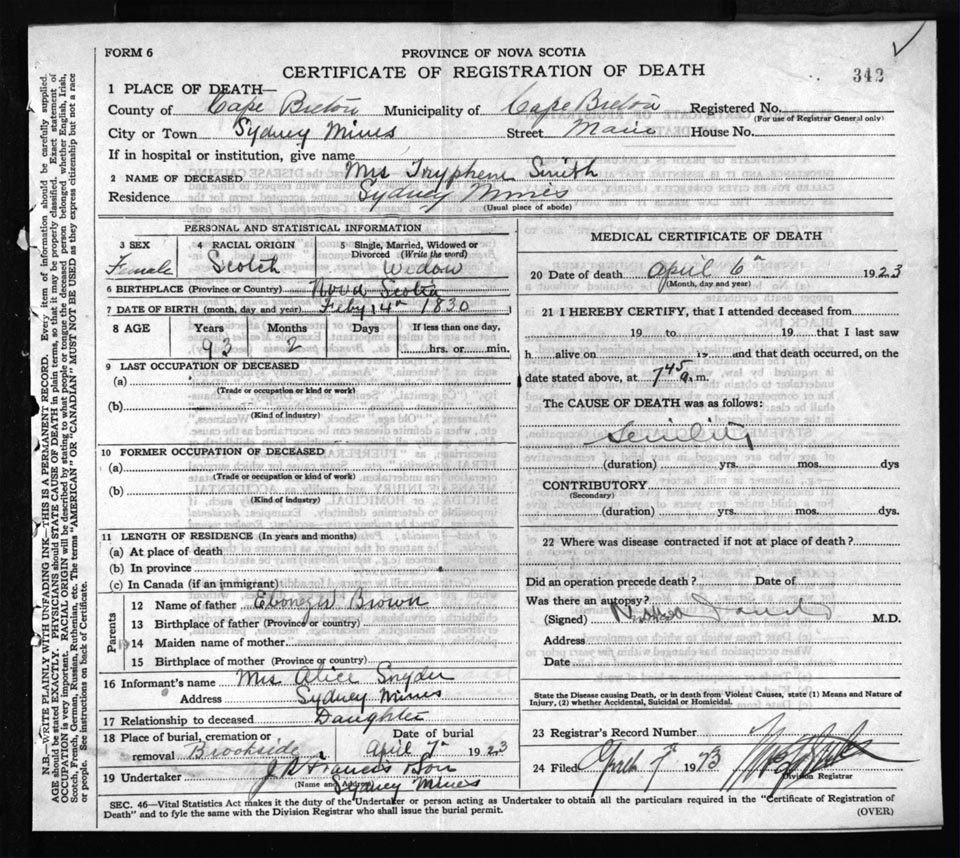 FORM 6
PROVINCE OF NOVA SCOTIA
CERTIFICATE OF REGISTRATION OF DEATH
342
1 PLACE OF DEATH—
County of Cape Breton Municipality of Cape Breton Registered No.
(For use of Registrar General only)
City or Town Sydney Mines Street Main House No.
If in hospital or institution, give name
2 NAME OF DECEASED Mrs Tryphene Smith
Residence Sydney Mines
(Usual place of abode)
PERSONAL AND STATISTICAL INFORMATION
3 SEX 4 RACIAL ORIGIN 5 Single, Married, Widowed or Divorced (Write the word)
Female Scotch Widow
6 BIRTHPLACE (Province or Country) Nova Scotia
7 DATE OF BIRTH (month, day and year) Feby 14th 1830
8 AGE Years Months Days If less than one day,
93 2 hrs. or min.
9 LAST OCCUPATION OF DECEASED
(a)
(Trade or occupation or kind or work)
(b)
(Kind of industry)
10 FORMER OCCUPATION OF DECEASED
(a)
(Trade or occupation or kind of work)
(b)
(Kind of industry)
11 LENGTH OF RESIDENCE (In years and months)
(a) At place of death
(b) In province
(c) In Canada (if an immigrant)
Parents
12 Name of father Ebenezer Brown
13 Birthplace of father (Province or country)
14 Maiden name of mother
15 Birthplace of mother (Province or country)
16 Informant's name Mrs Alice Snyder
Address Sydney Mines
17 Relationship to deceased Daughter
18 Place of burial, cremation or removal Brookside Date of burial April 7th 1923
19 Undertaker J R Francis & Son
(Name and address) Sydney Mines
MEDICAL CERTIFICATE OF DEATH
20 Date of death April 6th 1923
(Month, day and year)
21 I HEREBY CERTIFY, that I attended deceased from
19 to 19 that I last saw
h alive on 19 and that death occurred, on the
date stated above, at 7 45 a. m.
The CAUSE OF DEATH was as follows:
Senility
(duration) yrs. mos. dys
CONTRIBUTORY
(Secondary)
(duration) yrs. mos. dys.
22 Where was disease contracted if not at place of death?
Did an operation precede death? Date of
Was there an autopsy?
(Signed) M.D.
Address
Date
State the Disease causing Death, or in death from Violent Causes, state (1) Means and Nature of
Injury, (2) whether Accidental, Suicidal or Homicidal.
23 Registrar's Record Number
24 Filed April 7th 1923
Division Registrar
SEC. 46—Vital Statistics Act makes it the duty of the Undertaker or person acting as Undertaker to obtain all the particulars required in the "Certificate of Registration of
Death" and to fyle the same with the Division Registrar who shall issue the burial permit.
(OVER)
N.B.—WRITE PLAINLY WITH UNFADING INK—THIS IS A PERMANENT RECORD. Every item of information should be carefully supplied.
AGE should be stated EXACTLY. PHYSICIANS should STATE CAUSE OF DEATH in plain terms, so that it may be properly classified. Exact statement of
OCCUPATION is very important. RACIAL ORIGIN will be described by stating to what people or tongue the deceased person belonged whether English, Irish,
Scotch, French, German, Russian, Ruthenian, etc. The terms "AMERICAN" OR "CANADIAN" MUST NOT BE USED as they express citizenship but not a race
or people. See instructions on back of Certificate.